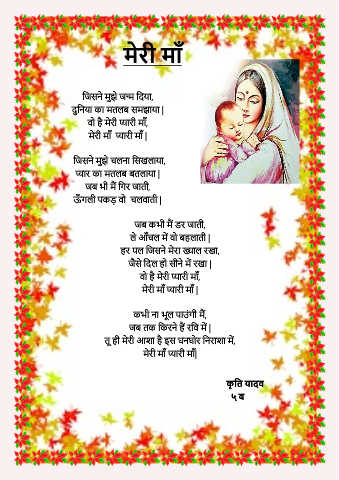 मेरी माँ
जिसने मुझे जन्म दिया,
दुनिया का मतलब समझाया |
वो है मेरी प्यारी माँ,
मेरी माँ प्यारी माँ |
जिसने मुझे चलना सिखलाया,
प्यार का मतलब बतलाया |
जब भी मैं गिर जाती,
ऊँगली पकड़ वो चलवाती |
जब कभी मैं डर जाती,
ले आँचल में वो बहलाती |
हर पल जिसने मेरा ख्याल रखा,
जैसे दिल हो सीने में रखा |
वो है मेरी प्यारी माँ,
मेरी माँ प्यारी माँ |
कभी ना भूल पाउंगी मैं,
जब तक किरने हैं रवि में |
तू ही मेरी आशा है इस घनघोर निराशा में,
मेरी माँ प्यारी माँ|
कृति यादव
५ ब